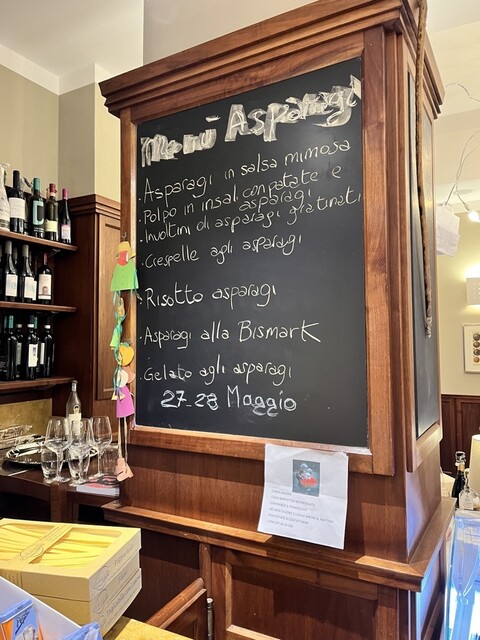 Menù Asparagi
· Asparagi in salsa mimosa
· Polpo in insal. con patate e asparagi
· Involtini di asparagi gratinati
· Crespelle agli asparagi
· Risotto asparagi
· Asparagi alla Bismark
· Gelato agli asparagi
27-28 Maggio